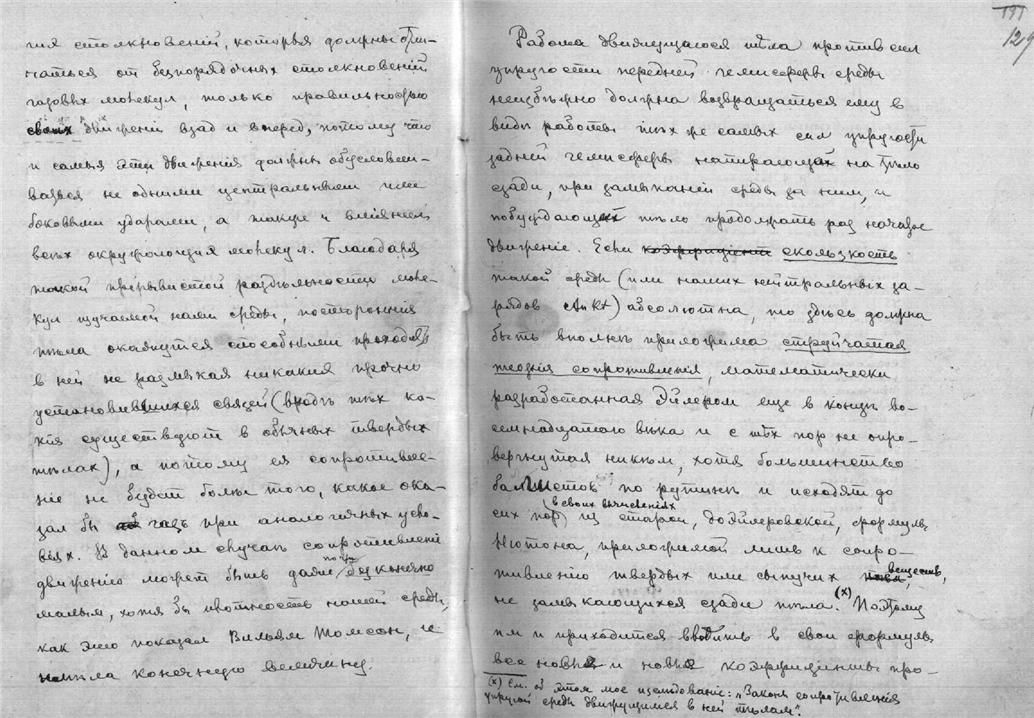 гія столкновеній, которыя должны отли-
чаться от безпорядочных столкновеній
газовых молекул, только правильностью
своих движеній взад и вперед, потому что
и самыя эти движенія должны обусловли-
ваться не одними центральными или
боковыми ударами, а также и вліяніем
всех окружающих молекул. Благодаря
такой прерывистой раздельности моле-
кул изучаемой нами среды, посторонния
тѣла окажутся способными проходить
в ней не размыкая никакия прочно
установившихся связей (вродѣ тѣх ка-
кія существуют в обычных твердых
тѣлах), а потому ея сопротивле-
ніе не будет болѣе того, какое ока-
зал бы газ при аналогичных усло-
віях. В данном случаѣ сопротивленіе
движенію может быть даже почти безконечно
малым, хотя бы плотность нашей среды,
как это показал Вильям Томсон, и
имѣла конечную величину.
129
Работа движущагося тѣла против сил
упругости передней гемисферы среды
неизбѣжно должна возвращаться ему в
видѣ работы тѣх же самых сил упругости
задней гемисферы напирающих на тѣло
сзади, при замыканіи среды за ним, и
побуждающих тѣло продолжать раз начатое
движеніе. Если коэффиціент скользкость
такой среды (или наших нейтральных за-
рядов) абсолютна, то здѣсь должна
быть вполнѣ приложима струйчатая
теорія сопротивленія, математически
разработанная Эйлером еще в концѣ во-
семнадцатого вѣка и с тѣх пор не опро-
вергнутая никѣм, хотя большинство
баллистов по рутинѣ и исходят до
сих пор в своих вычисленіях из старой, доэйлеровской, формулы
Нютона, приложимой лишь к сопро-
тивленію твердых или сыпучих веществ,
не замыкающихся сзади тѣла. (x) Поэтому
им и приходится вводить в свои формулы
все новые и новые коэффиціенты про-
(x) См. об этом мое изслѣдованіе: „Законы сопротивленія
упругой среды движущимся в ней тѣлам".